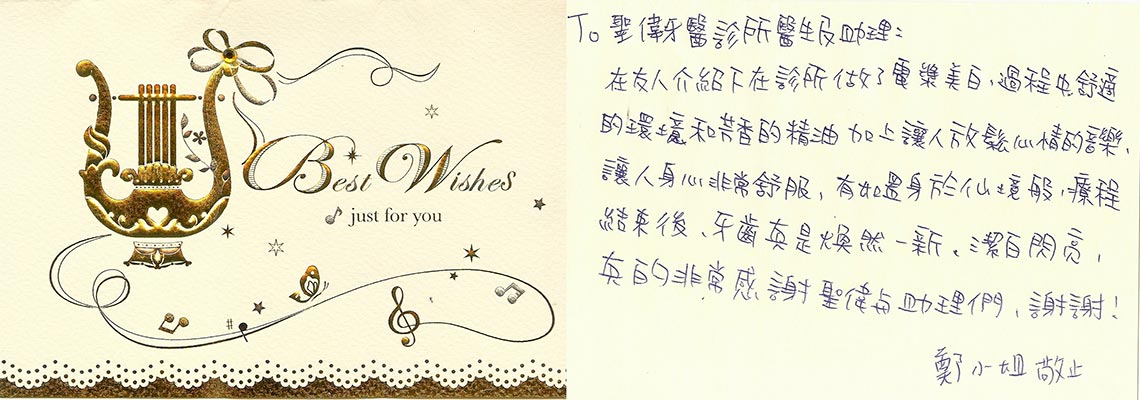 Best Wishes
just for you
To 聖偉牙醫診所醫生及助理:
在友人介紹下在診所做了電漿美白，過程中舒適
的環境和芳香的精油加上讓人放鬆心情的音樂，
讓人身心非常舒服，有如置身於仙境般，療程
結束後，牙齒真是煥然一新，潔白閃亮，
真的非常感謝聖偉與助理們，謝謝!
鄭小姐 敬上